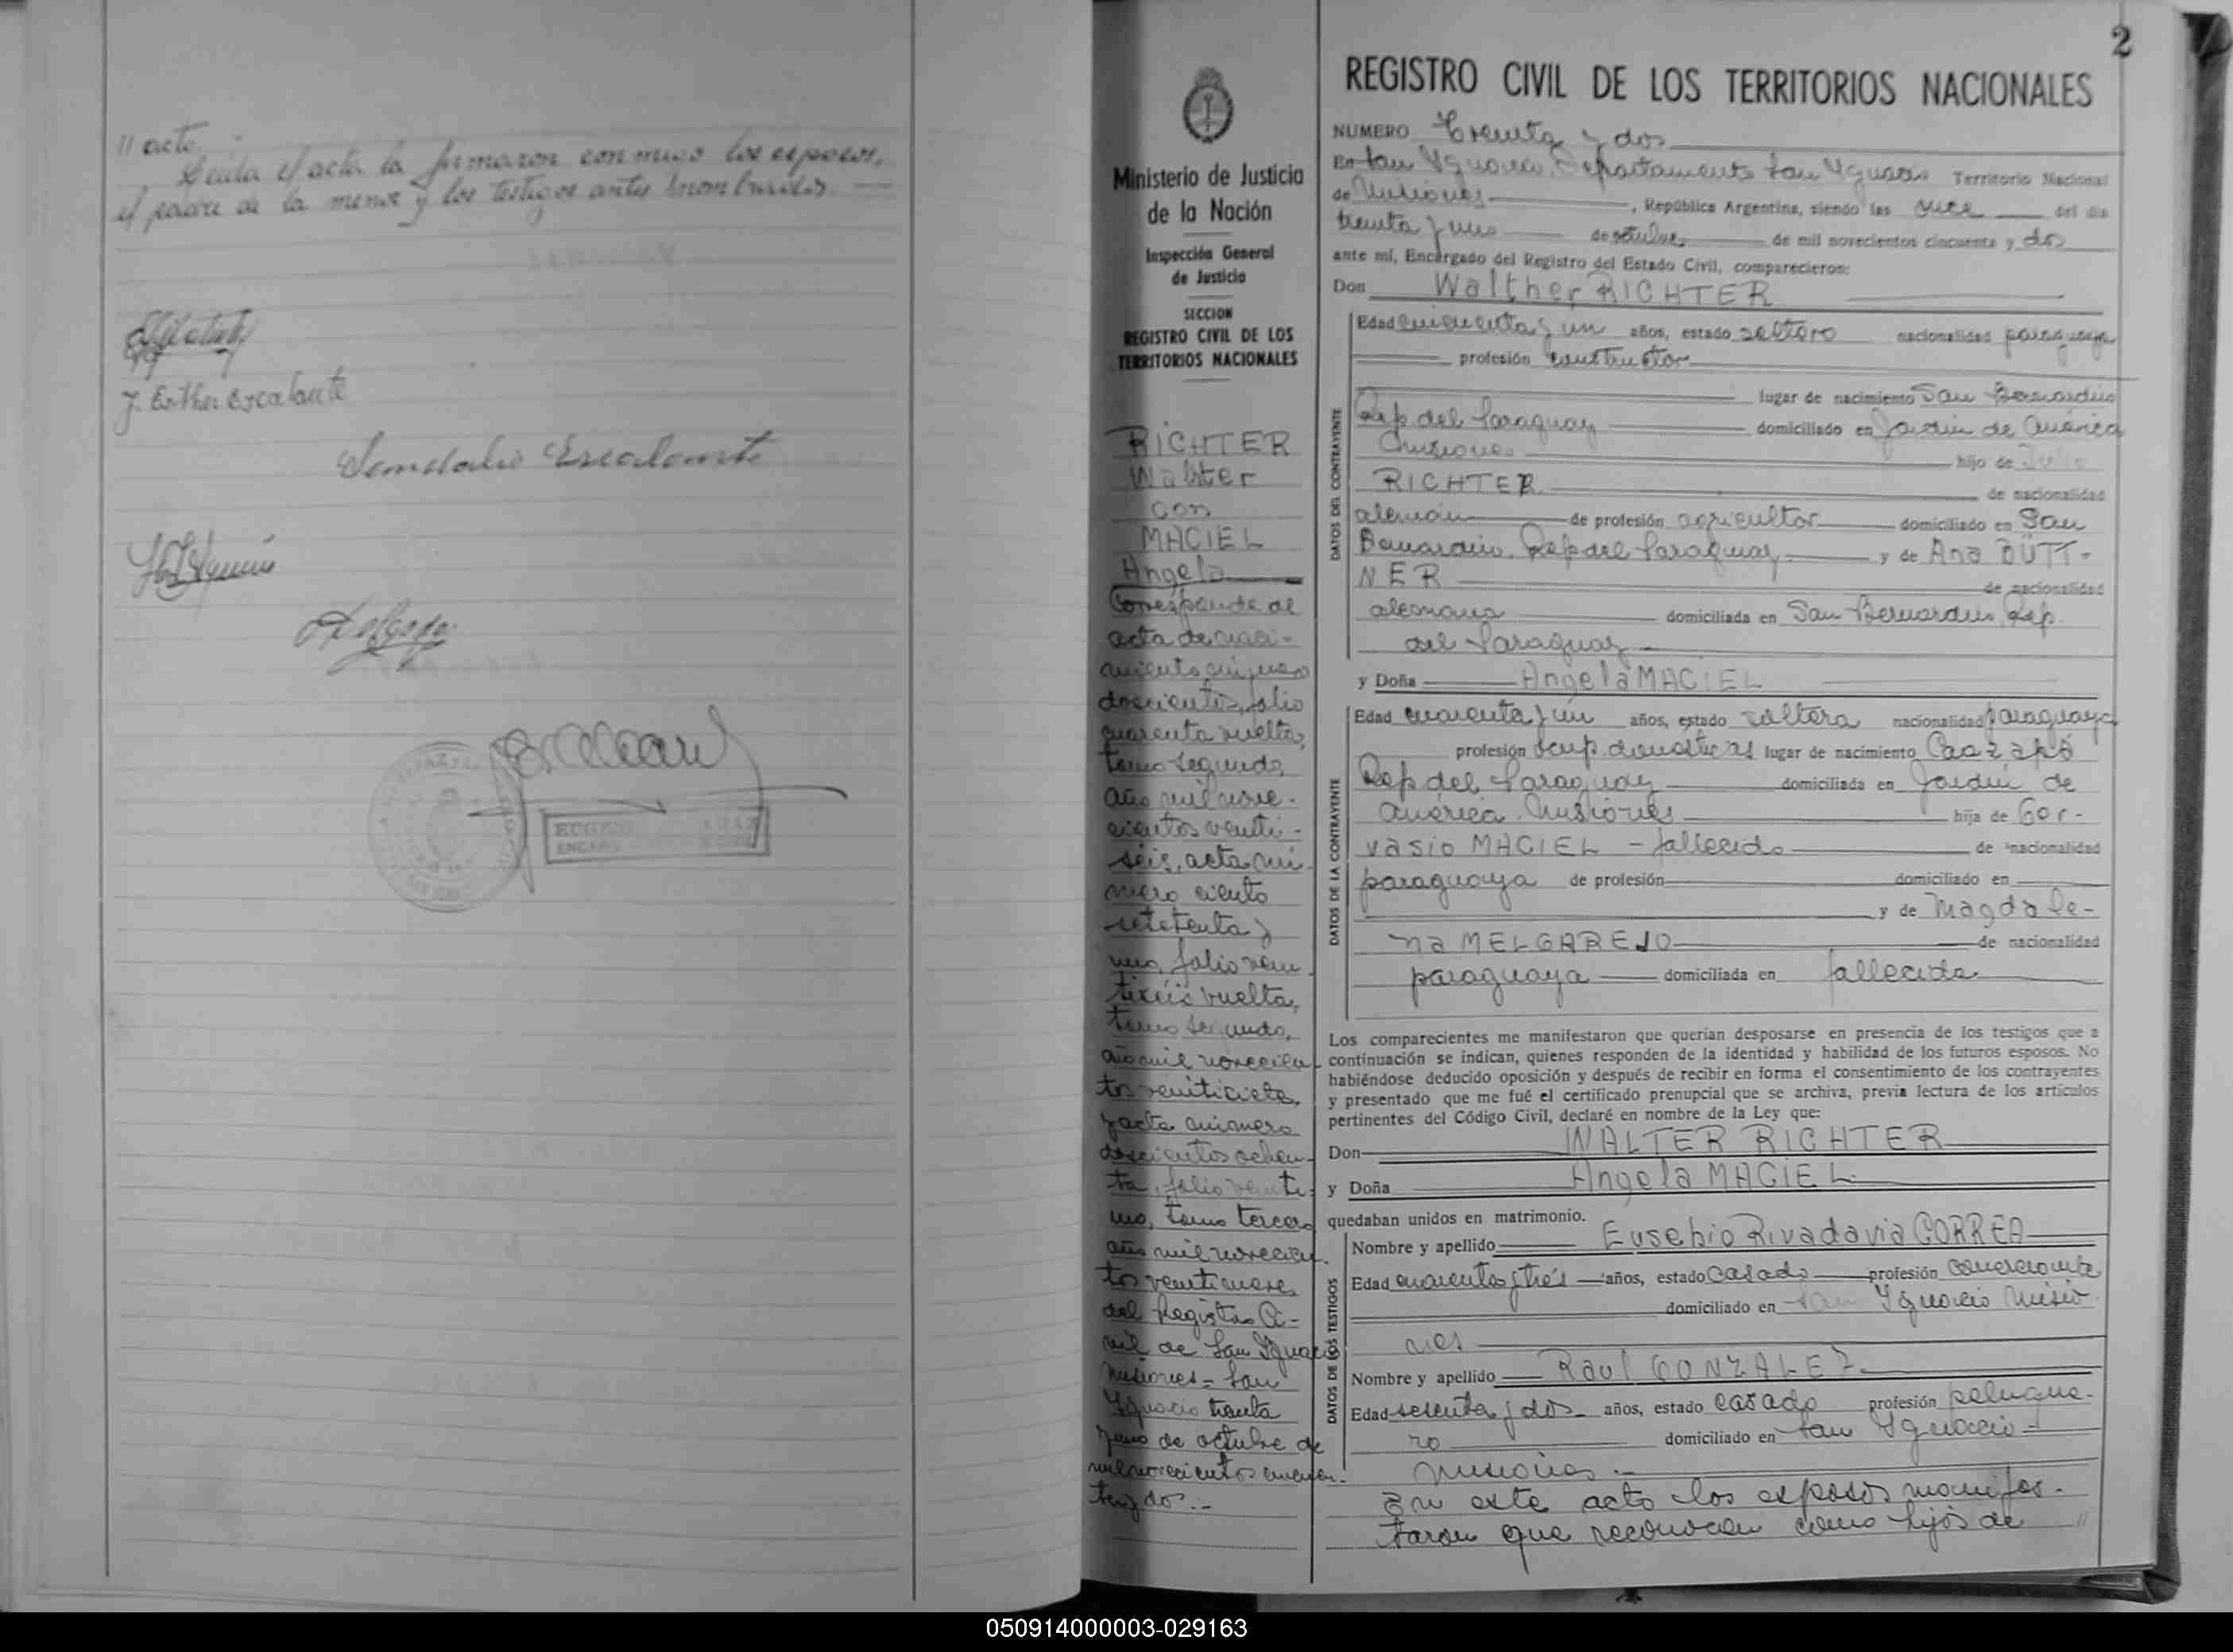 // acto.
Leida el acta la firmaron conmigo los esposos,
el padre de la menor y los testigos antes nombrados.
J. Esther Escalante
Escalante
2
Ministerio de Justicia
de la Nación
Inspección General
de Justicia
SECCION
REGISTRO CIVIL DE LOS
TERRITORIOS NACIONALES
RICHTER
Walter
con
MACIEL
Angela
Corresponde al
acta de naci-
miento número
doscientos, folio
cuarenta vuelta,
tomo segundo,
año mil nove-
cientos veinti-
séis, acta nú-
mero ciento
setetenta y
uno, folio vein
tiséis vuelta,
tomo segundo,
año mil novecien
tos veintisiete,
y acta número
doscientos ochen-
ta, folio veinti
uno, tomo tercero
año mil novecien-
tos veintinueve
del Registro Ci-
vil de San Ignacio
Misiones = San
Ignacio treinta
y uno de octubre de
mil novecientos cincuen-
ta y dos.-
REGISTRO CIVIL DE LOS TERRITORIOS NACIONALES
NUMERO Treinta y dos
En San Ignacio, Departamento San Ignacio Territorio Nacional
de Misiones, República Argentina, siendo las once del día
treinta y uno de octubre de mil novecientos cincuenta y dos
ante mí, Encargado del Registro del Estado Civil, comparecieron:
Don Walther RICHTER
DATOS DEL CONTRAYENTE
Edad cincuenta y un años, estado soltero nacionalidad paraguaya
profesión constructor
lugar de nacimiento San Bernardino
Rep. del Paraguay domiciliado en Jardín de América
Misiones hijo de Julio
RICHTER de nacionalidad
alemán de profesión agricultor domiciliado en San
Bernardino, Rep. del Paraguay y de Ana BÜTT-
NER de nacionalidad
alemana domiciliada en San Bernardino Rep.
del Paraguay
y Doña Angela MACIEL
DATOS DE LA CONTRAYENTE
Edad cuarenta y un años, estado soltera nacionalidad paraguaya
profesión ocup. domésticas lugar de nacimiento Caazapá
Rep. del Paraguay domiciliada en Jardín de
América. Misiones hija de Ger-
vasio MACIEL - fallecido de nacionalidad
paraguaya de profesión domiciliado en
y de Magdale-
na MELGAREJO de nacionalidad
paraguaya domiciliada en fallecida
Los comparecientes me manifestaron que querían desposarse en presencia de los testigos que a
continuación se indican, quienes responden de la identidad y habilidad de los futuros esposos. No
habiéndose deducido oposición y después de recibir en forma el consentimiento de los contrayentes
y presentado que me fué el certificado prenupcial que se archiva, previa lectura de los artículos
pertinentes del Código Civil, declaré en nombre de la Ley que:
Don WALTER RICHTER
y Doña Angela MACIEL
quedaban unidos en matrimonio.
DATOS DE LOS TESTIGOS
Nombre y apellido Eusebio Rivadavia CORREA
Edad cuarenta y tres años, estado casado profesión comerciante
domiciliado en San Ignacio Misio-
nes
Nombre y apellido Raul GONZALEZ
Edad sesenta y dos años, estado casado profesión peluque-
ro domiciliado en San Ignacio -
Misiones.-
En este acto los esposos manifes-
taron que reconocen como hijos de //
050914000003-029163